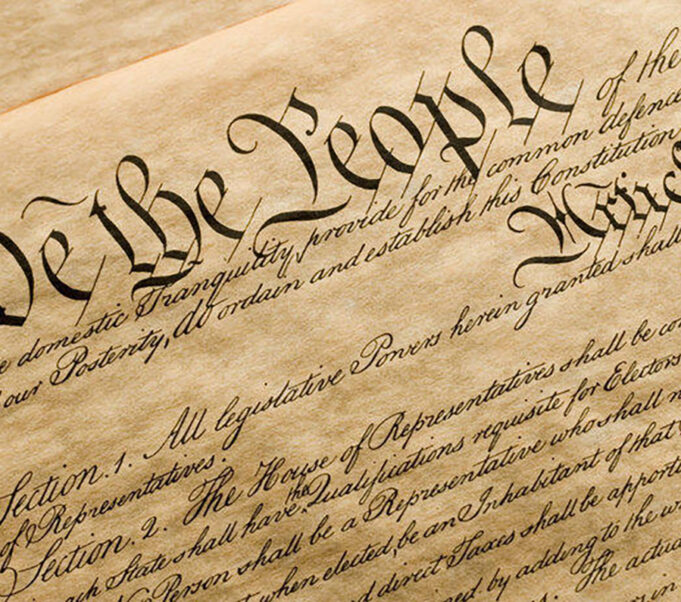 We the People of the
domestic Tranquility, provide for the common defence
our Posterity, do ordain and establish this Constitution
Article
Section. 1. All legislative Powers herein granted shall
of Representatives.
Section. 2. The House of Representatives shall be
each State shall have the Qualifications requisite for Electors
Person shall be a Representative who shall
when elected, be an Inhabitant of that
and direct Taxes shall be
by adding to the
The actual
in